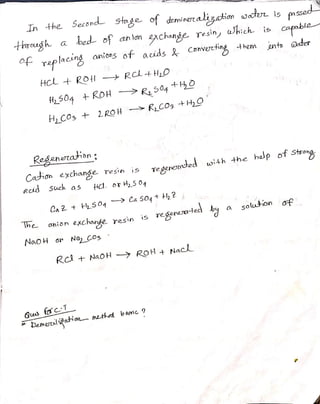 In the Second stage of demineralization water is passed
through a bed of anion exchange resin, which is capable
of replacing anions of acids & converting them into water
HCl + ROH → RCl + H₂O
H₂SO₄ + ROH → R₂SO₄ + H₂O
H₂CO₃ + 2ROH → R₂CO₃ + H₂O
Regeneration:
Cation exchange resin is regenerated with the help of strong
acid such as HCl or H₂SO₄
CaZ + H₂SO₄ → CaSO₄ + H₂Z
The anion exchange resin is regenerated by a solution of
NaOH or Na₂CO₃
RCl + NaOH → ROH + NaCl
Ques for C.T
* method